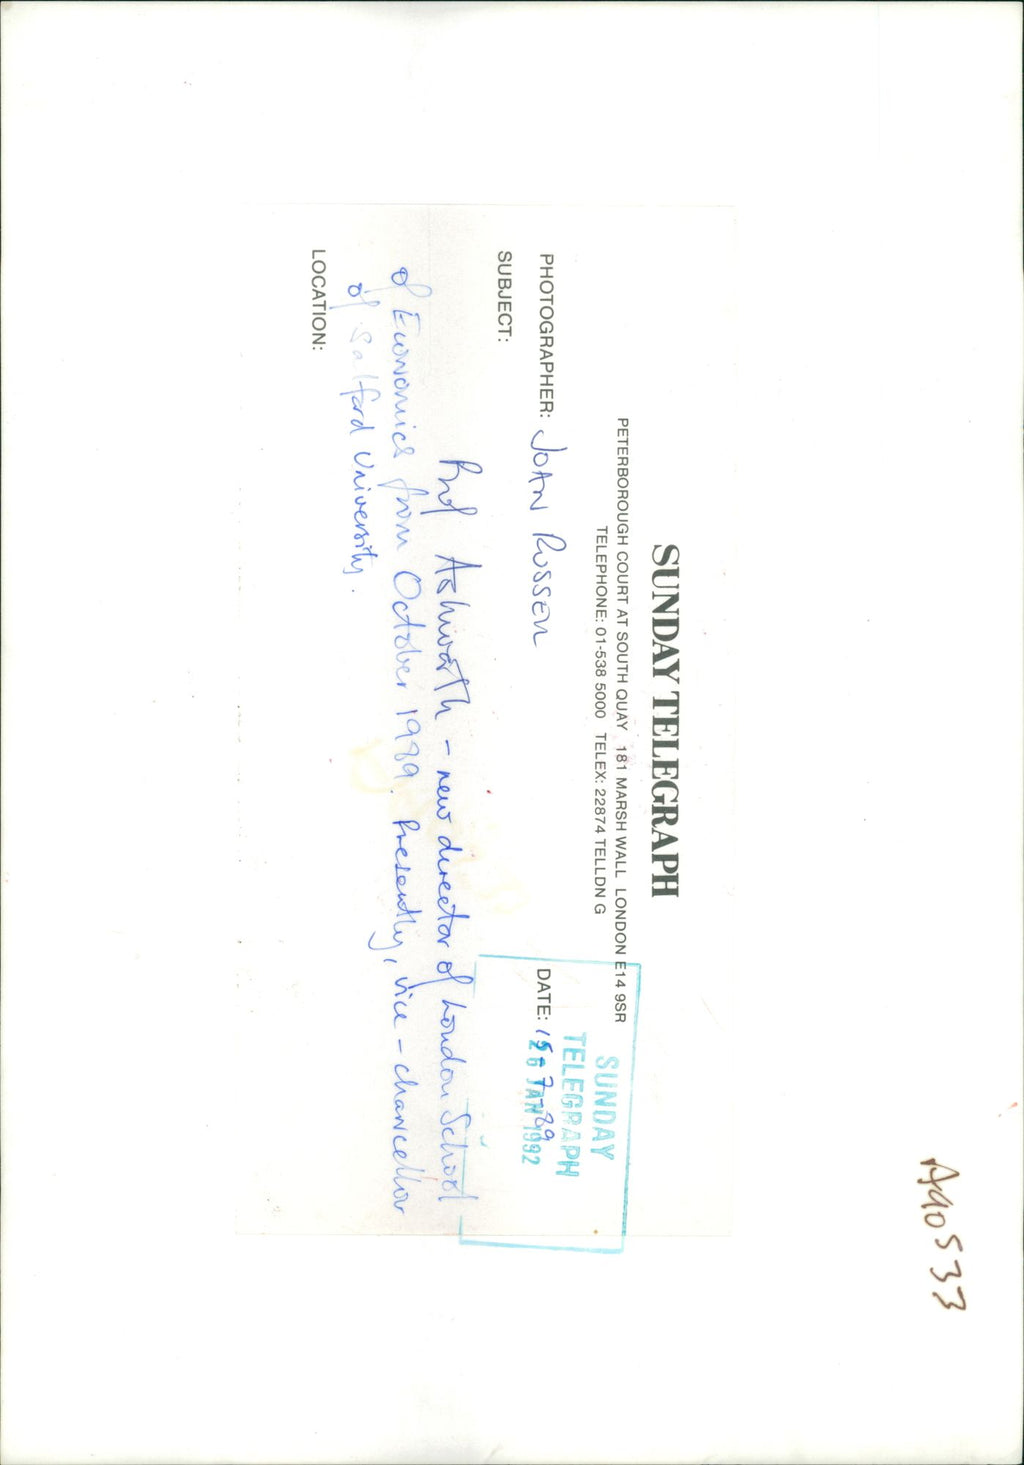 SUNDAY TELEGRAPH
PETERBOROUGH COURT AT SOUTH QUAY 181 MARSH WALL LONDON E14 9SR
TELEPHONE: 01-538 5000 TELEX: 22874 TELLDN G
PHOTOGRAPHER: JOAN RUSSELL
DATE: 15-7-89
SUNDAY
TELEGRAPH
26 JAN 1992
SUBJECT:
Prof Ashworth - new director of London School
of Economics from October 1989. Presently, vice-chancellor
of Salford University.
LOCATION:
A40533